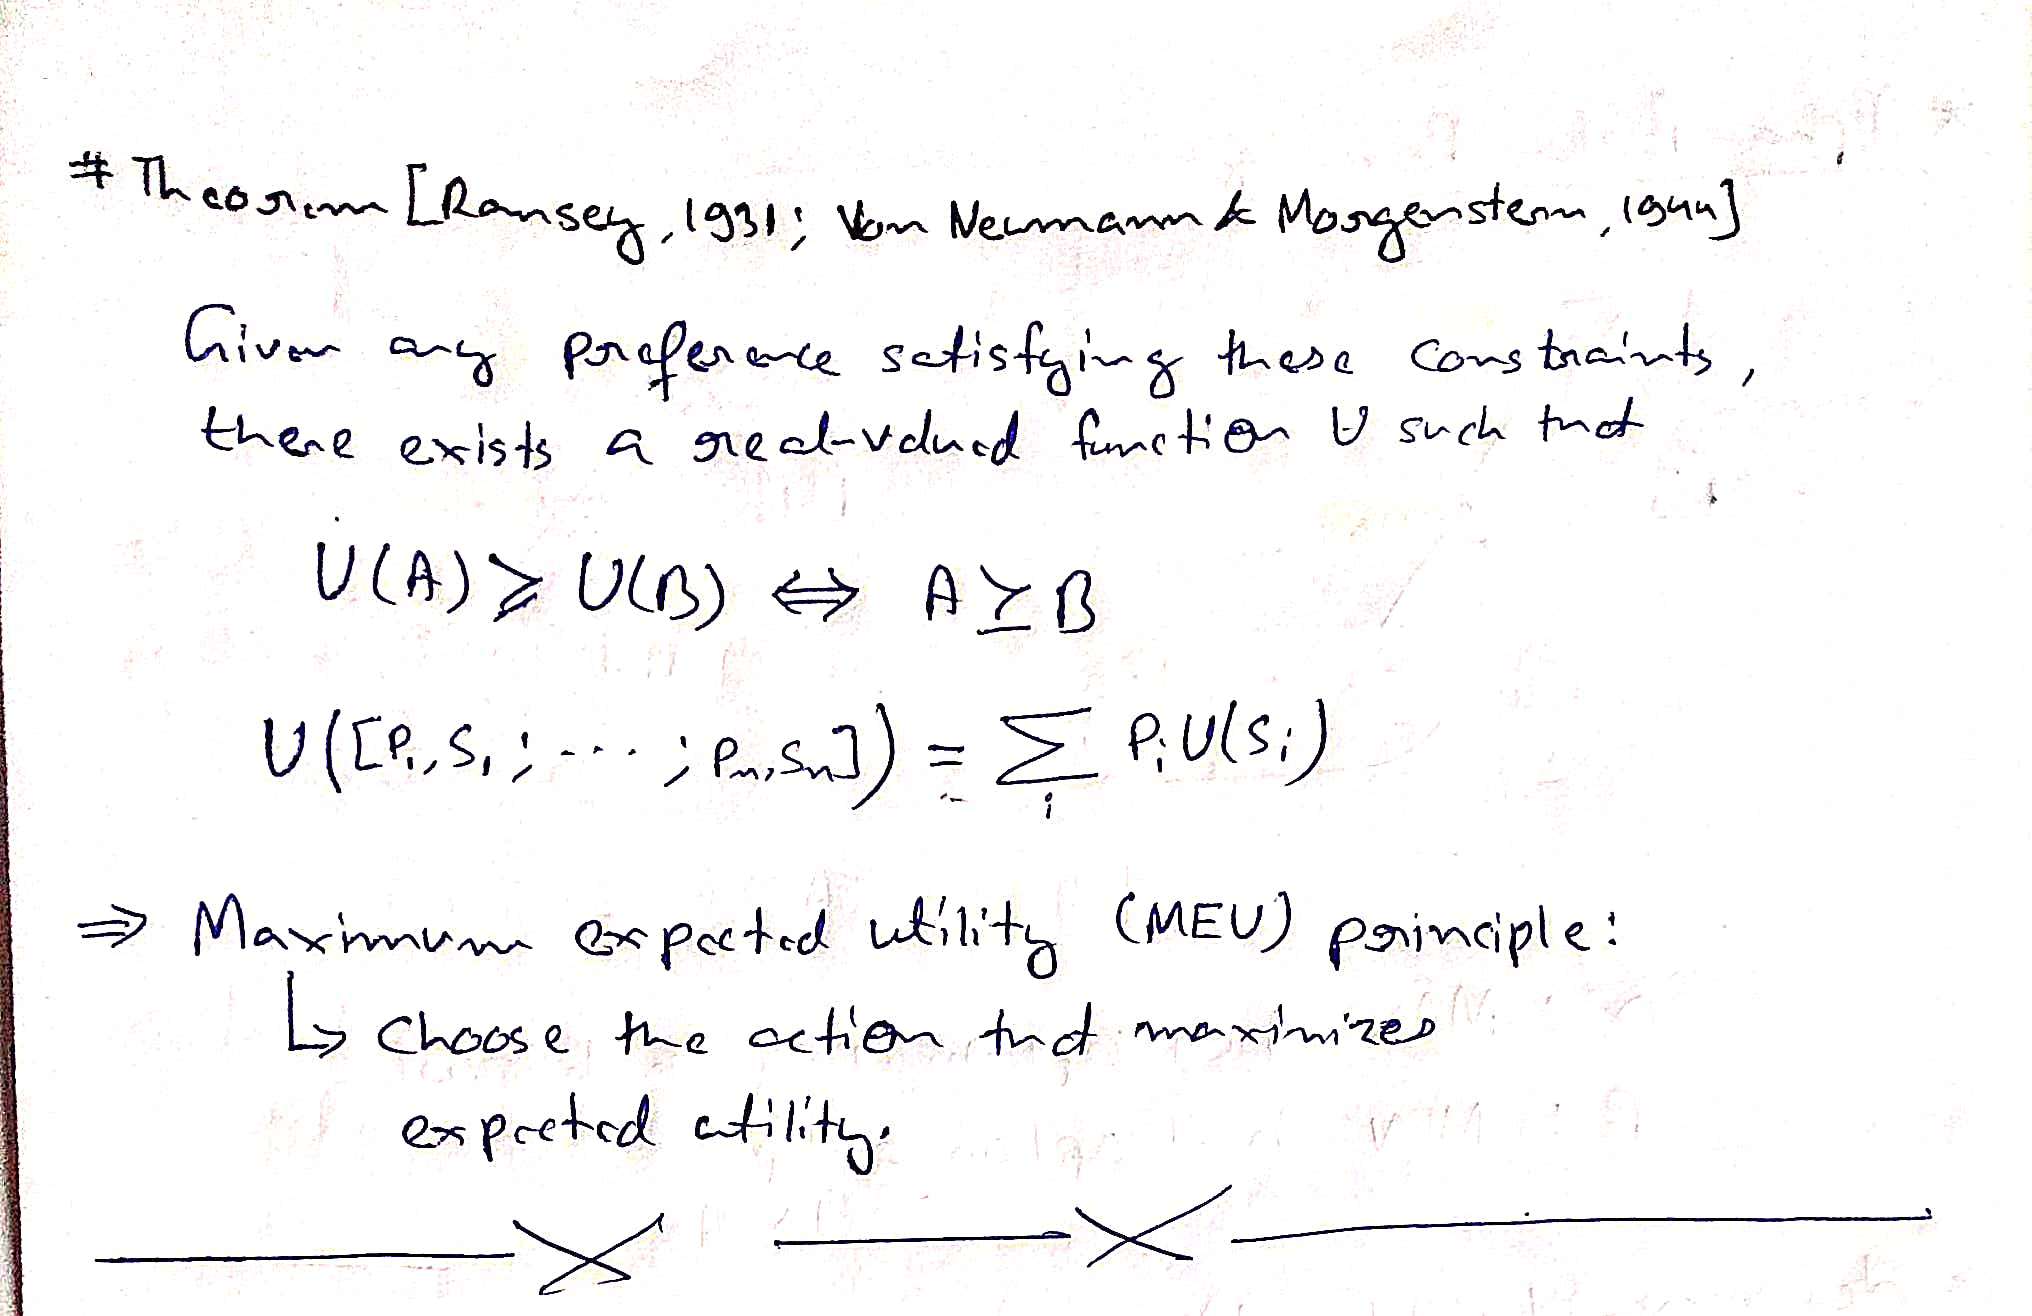 # Theorem [Ramsey, 1931; Von Neumann & Morgenstern, 1944]
Given any preference satisfying these constraints,
there exists a real-valued function U such that
U(A) ≥ U(B) ⇔ A ⪰ B
U([P₁, S₁; ....; Pₙ, Sₙ]) = Σᵢ Pᵢ U(Sᵢ)
⇒ Maximum expected utility (MEU) principle:
↳ Choose the action that maximizes
expected utility.